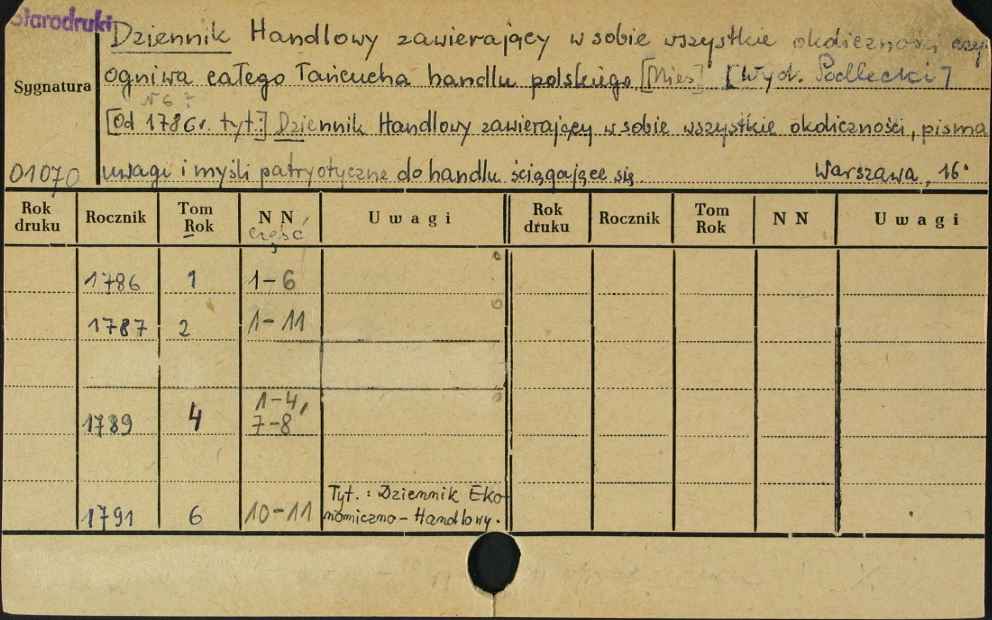 Starodruki
Dziennik Handlowy zawierający w sobie wszystkie okoliczności czyli
ogniwa całego łańcucha handlu polskiego [Mies] [Wyd. Podlecki]
Sygnatura
N 6 ?
[Od 1786r. tyt:] Dziennik Handlowy zawierający w sobie wszystkie okoliczności, pisma
01070 uwagi i myśli patryotyczne do handlu ściągające się. Warszawa, 16°
Rok druku Rocznik Tom Rok N N część Uwagi Rok druku Rocznik Tom Rok N N Uwagi
1786 1 1-6
1787 2 1-11
1789 4 1-4, 7-8
1791 6 10-11 Tyt.: Dziennik Ekonomiczno-Handlowy.